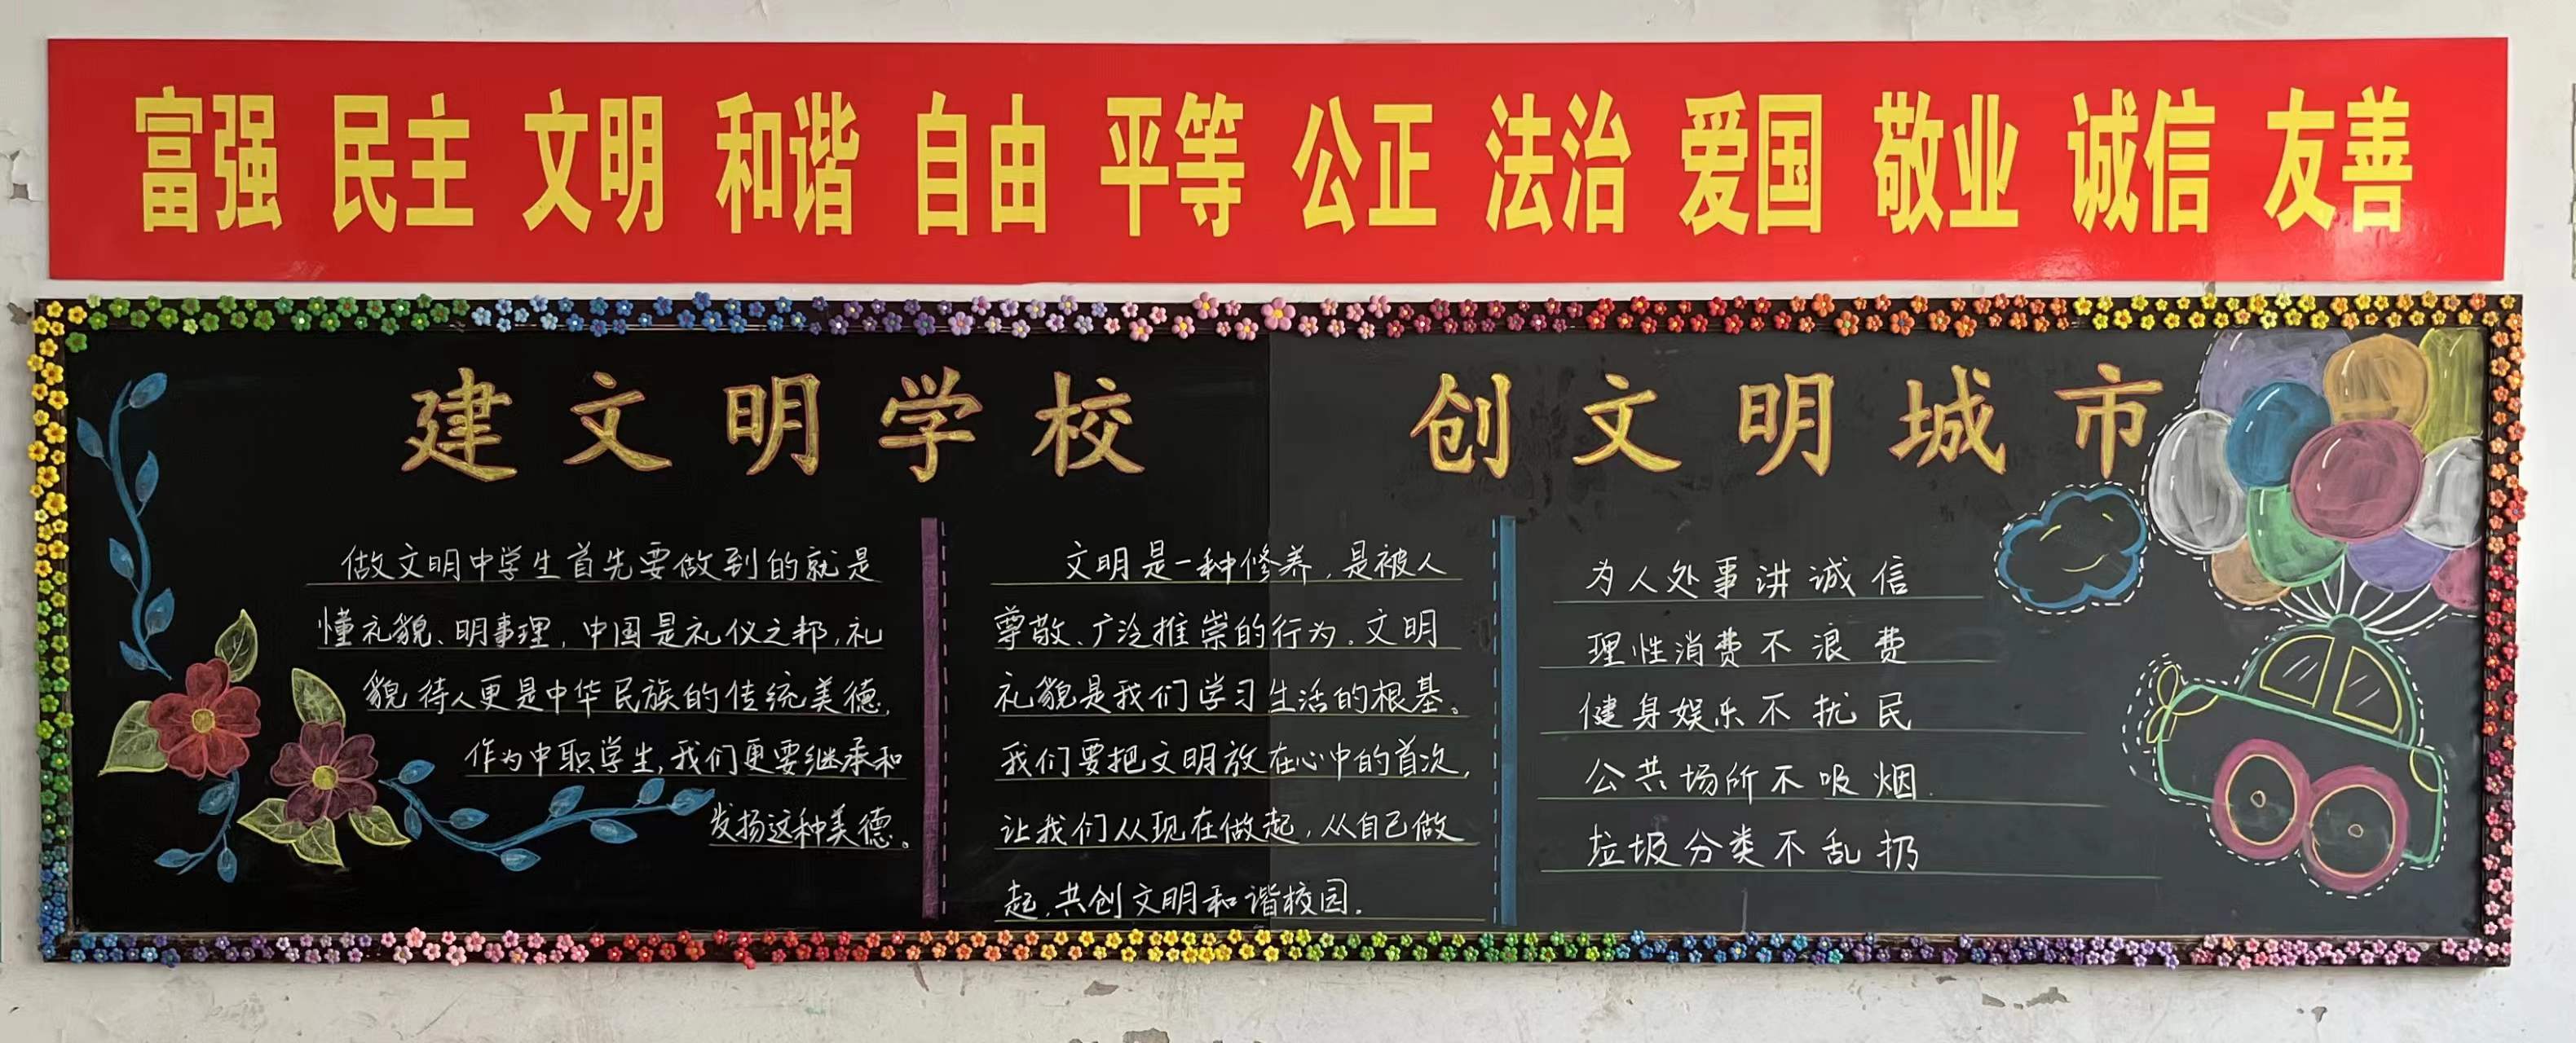 富强 民主 文明 和谐 自由 平等 公正 法治 爱国 敬业 诚信 友善
建文明学校 创文明城市
做文明中学生首先要做到的就是
懂礼貌、明事理，中国是礼仪之邦，礼
貌待人更是中华民族的传统美德，
作为中职学生，我们更要继承和
发扬这种美德。
文明是一种修养，是被人
尊敬、广泛推崇的行为。文明
礼貌是我们学习生活的根基。
我们要把文明放在心中的首次，
让我们从现在做起，从自己做
起，共创文明和谐校园．
为人处事讲诚信
理性消费不浪费
健身娱乐不扰民
公共场所不吸烟．
垃圾分类不乱扔